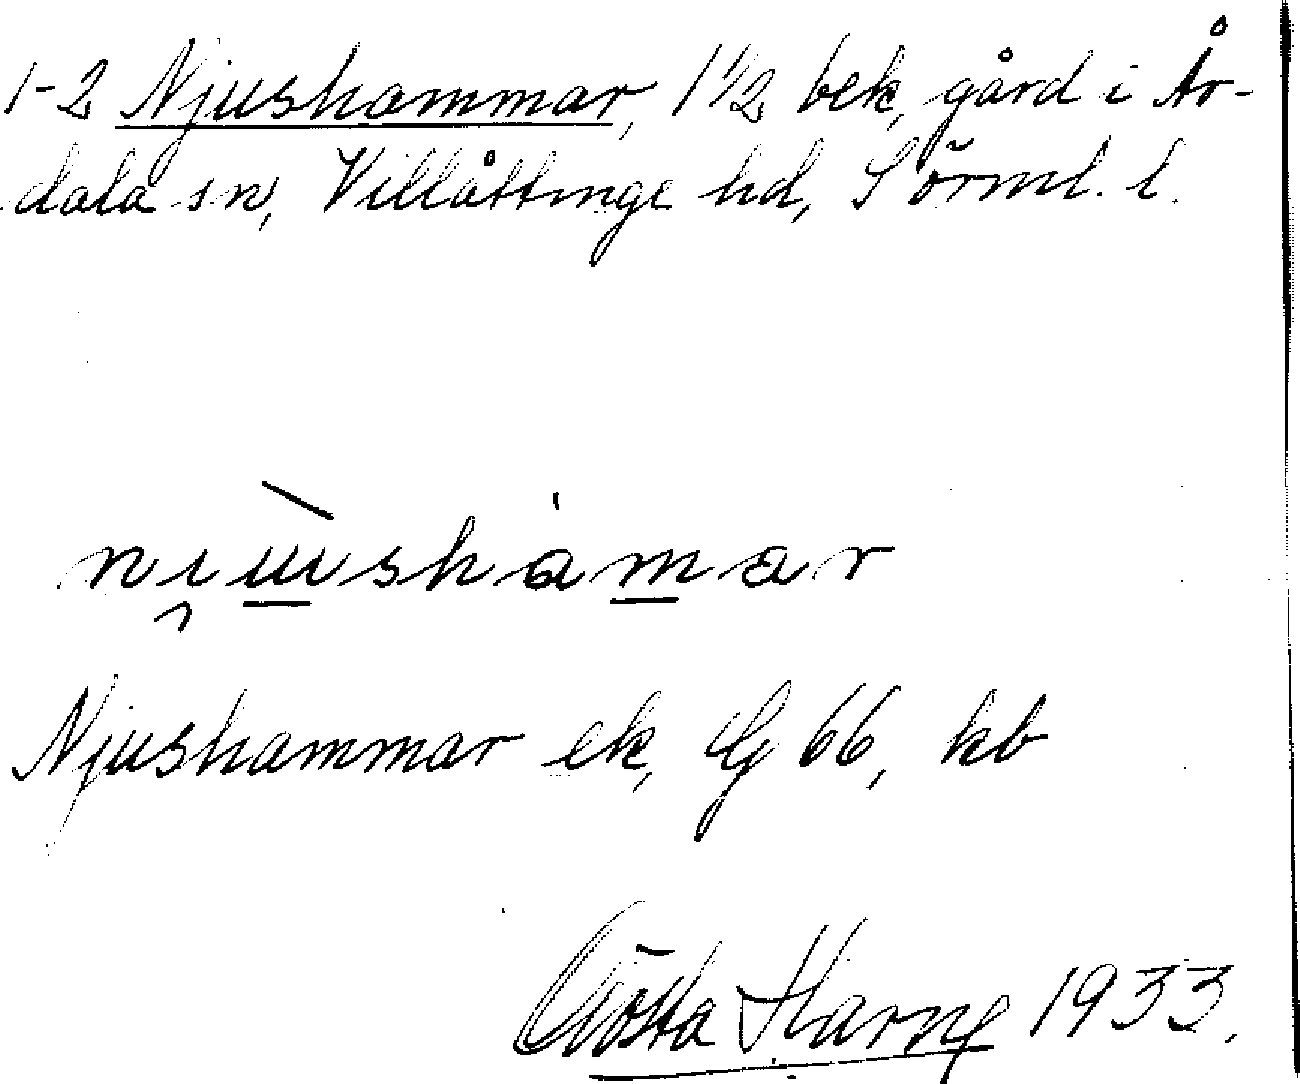 1-2 Njushammar, 1 1/2 bek, gård i År-
dala sn, Villåttinge hd, Sörml. l.
Njushammar ek, G 66, kb
Gösta 1933.